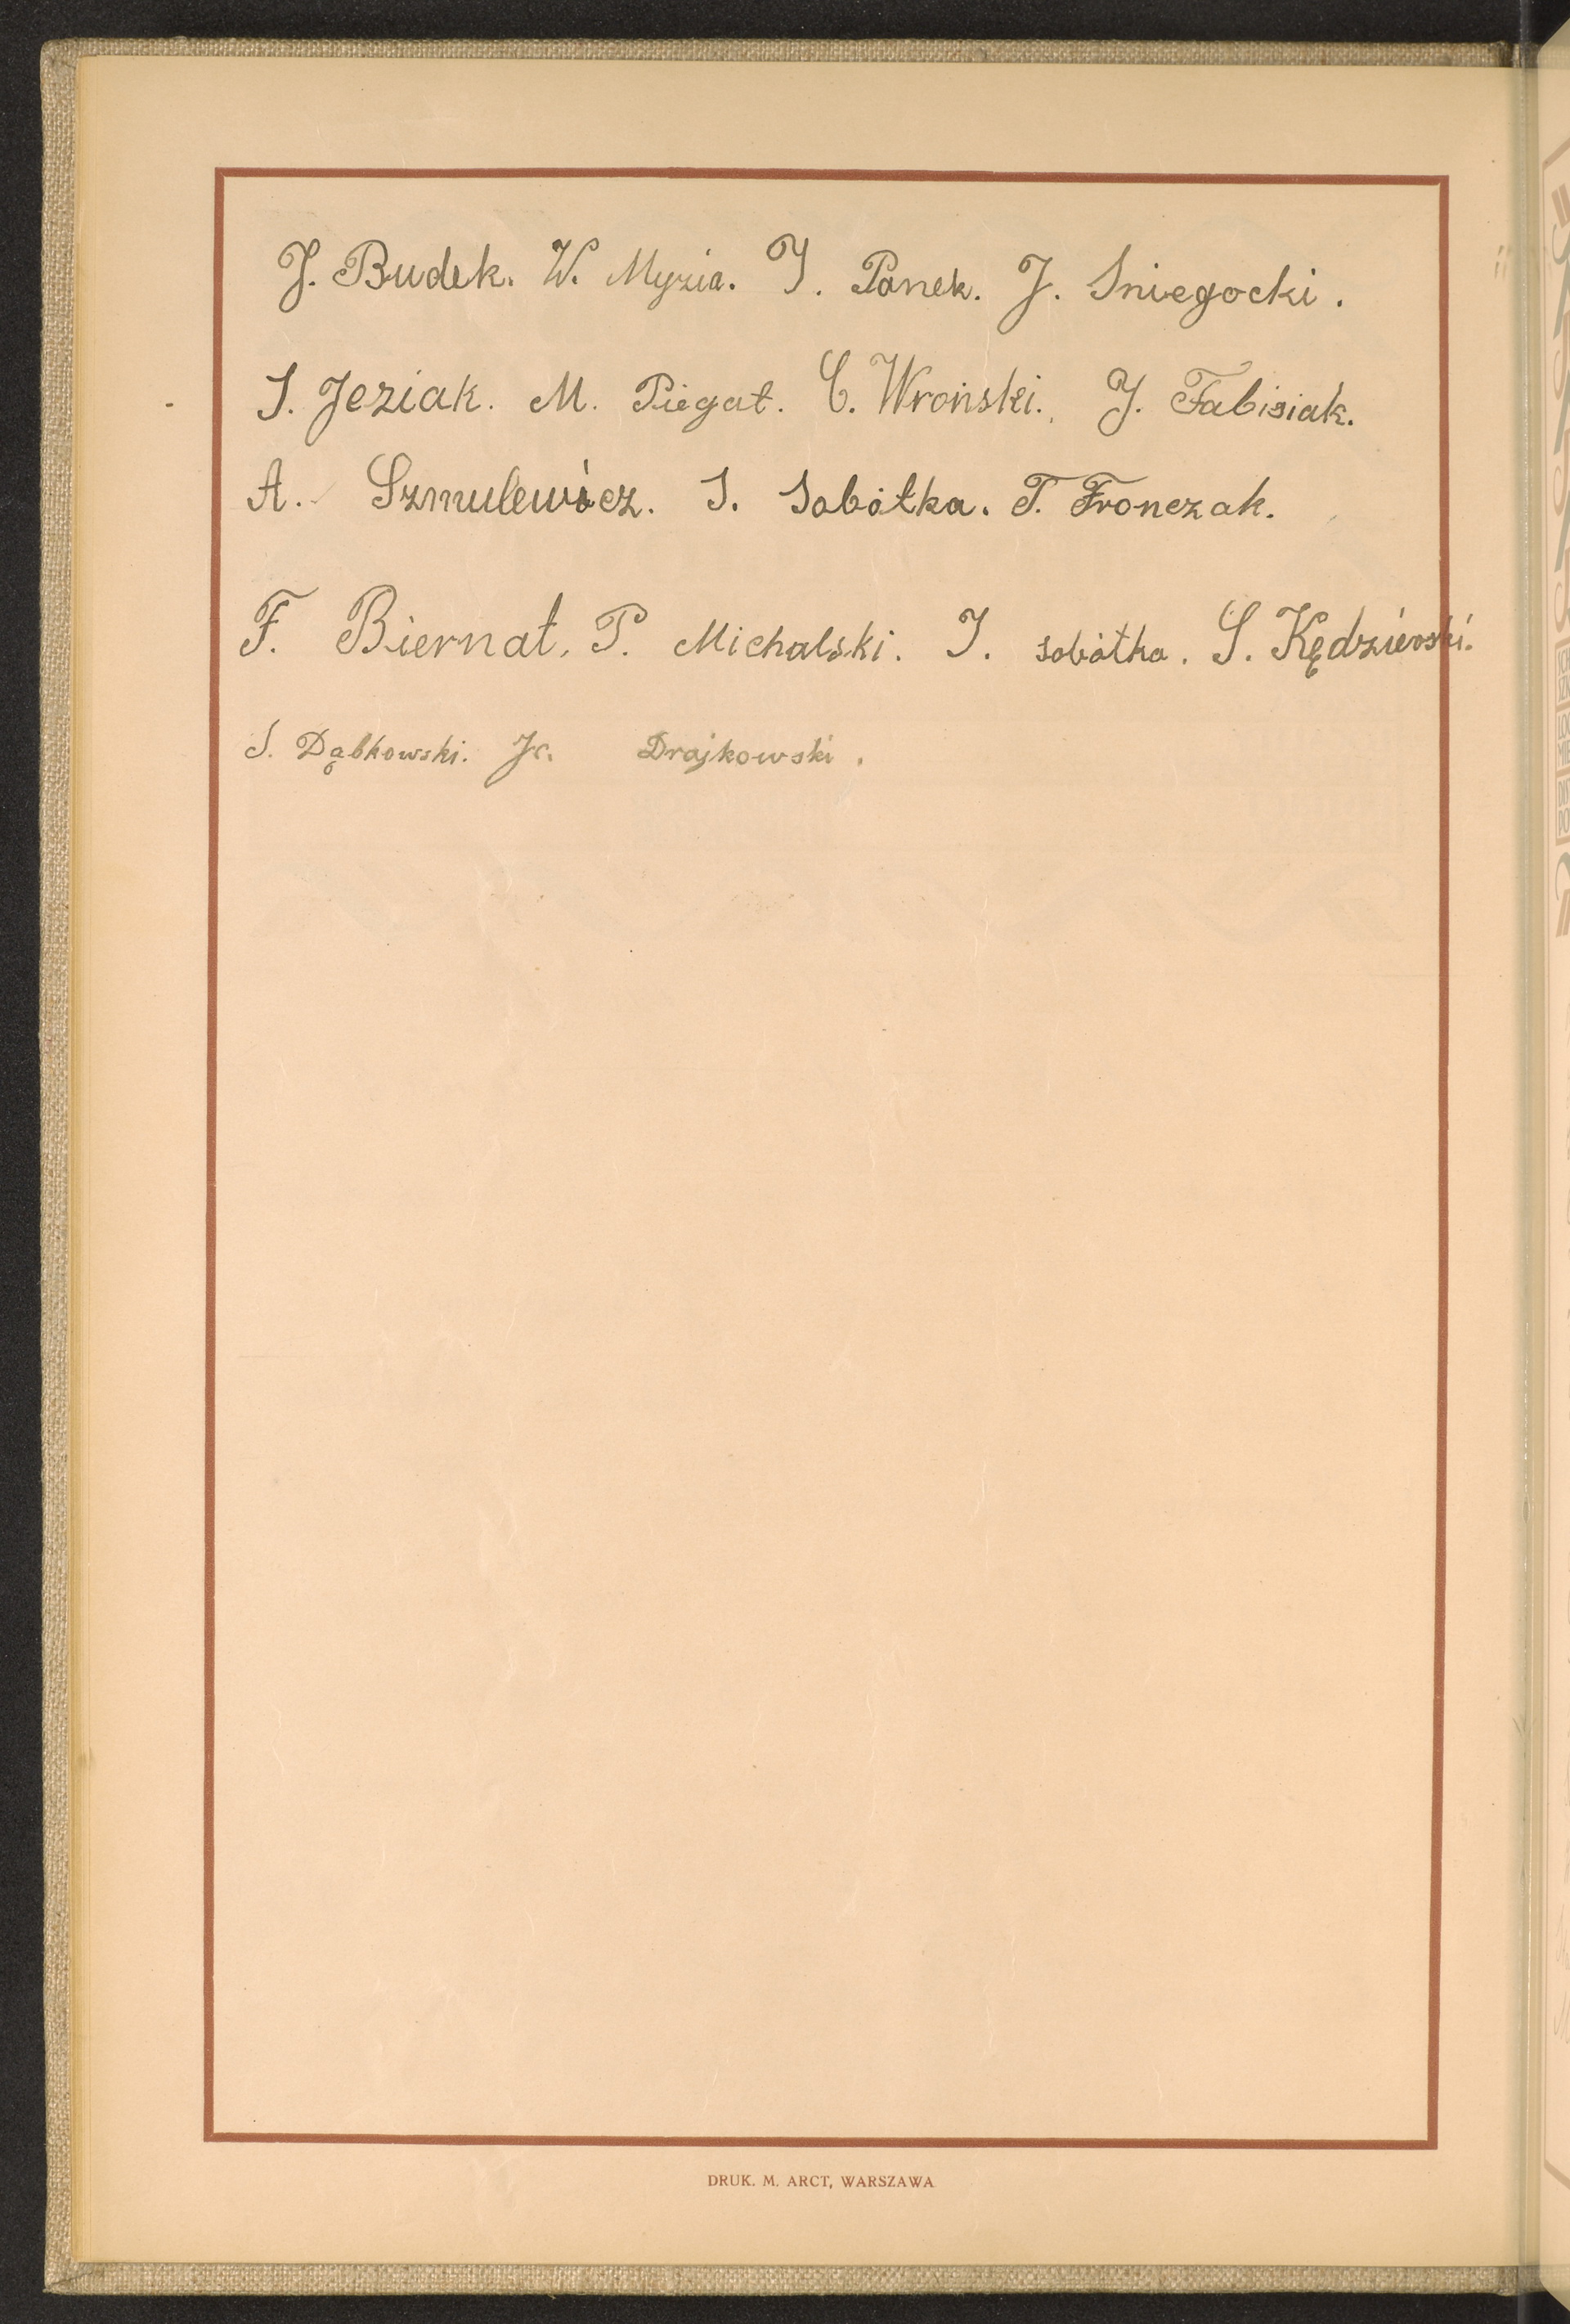 J. Budek. W. Myzia. J. Panek. J. Sniegocki.
S. Jeziak. M. Piegat. C. Wroński. J. Fabisiak.
A. Szmulewicz. S. Sobótka. T. Fronczak.
F. Biernat. P. Michalski. J. sobótka. S. Kędzierski.
S. Dąbkowski. Drajkowski.
DRUK. M. ARCT, WARSZAWA